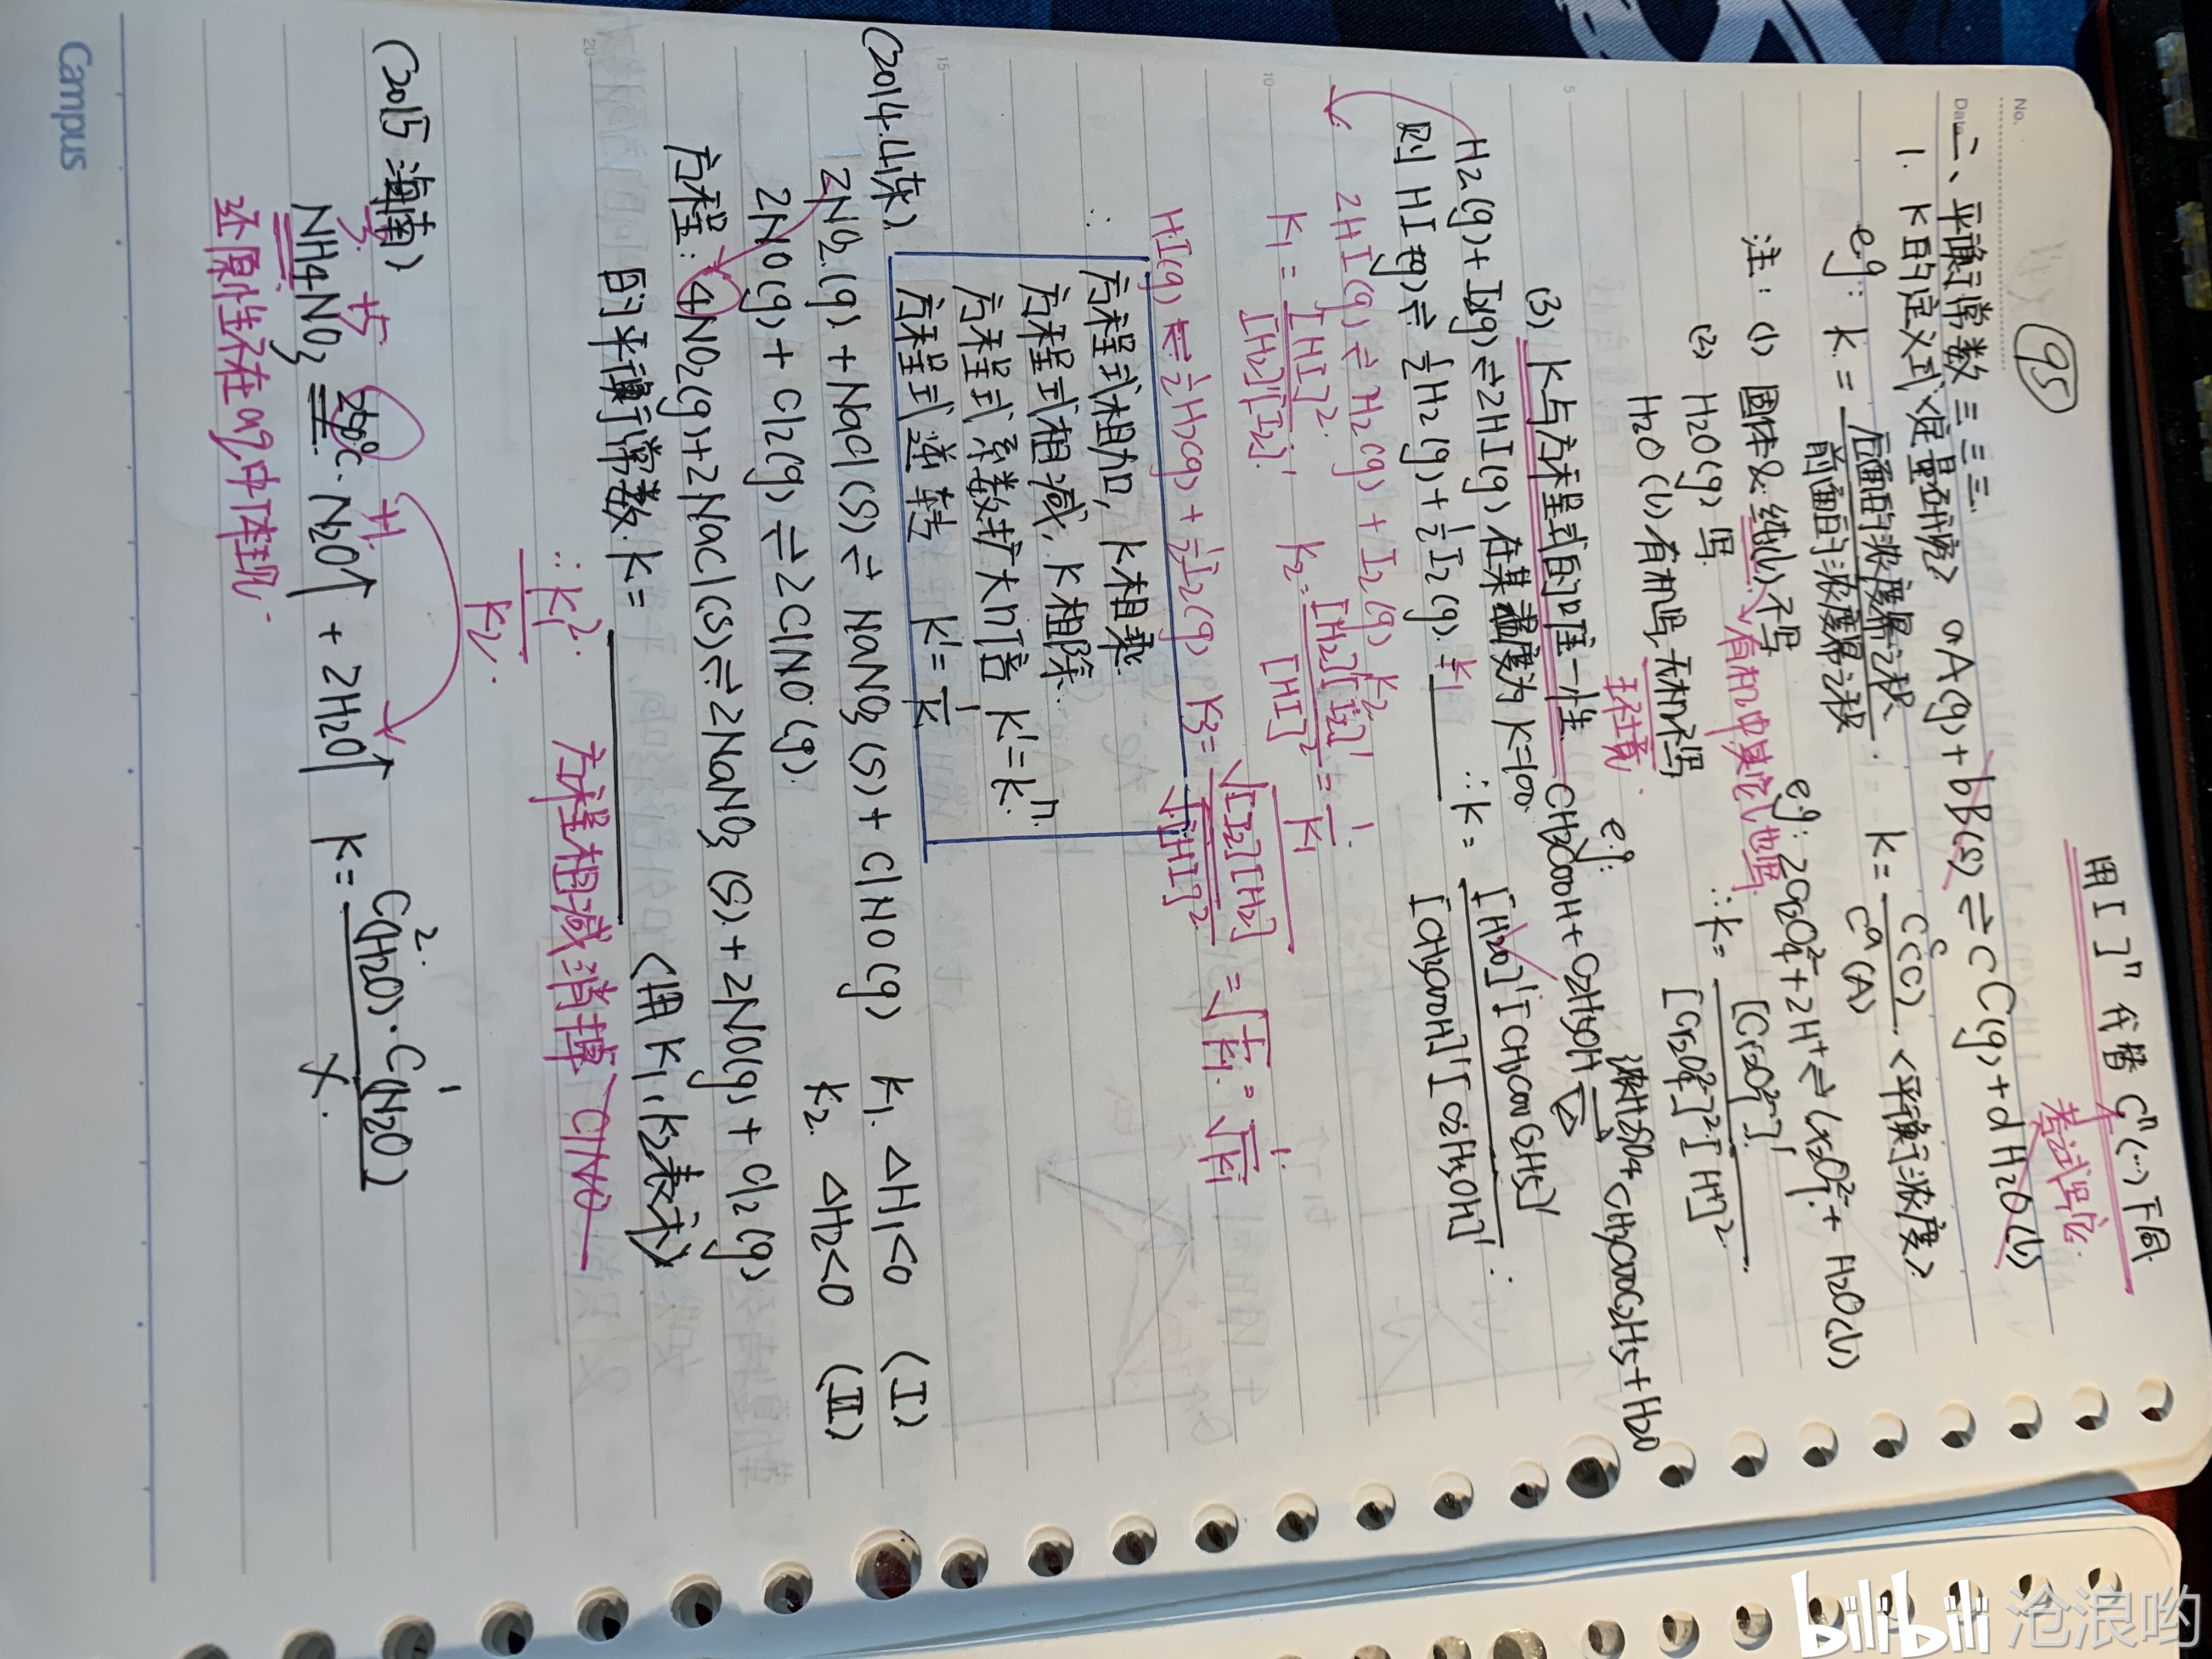 No.
Date
95
用[ ]ⁿ代替Cⁿ(…)下同
考试写它
二、平衡常数 三 三 三
1. K的定义式<定量研究> aA(g)+bB(s)⇌cC(g)+dH₂O(l)
eg: K = 后面的浓度幂之积/前面的浓度幂之积 K = Cᶜ(C)/Cᵃ(A) <平衡浓度>
注: (1) 固体&纯(l)不写 有机中其它(l)也写
eg: 2CrO₄²⁻+2H⁺⇌Cr₂O₇²⁻+H₂O(l)
(2) H₂O(g) 写 ∴K = [Cr₂O₇²⁻]¹/[CrO₄²⁻]²[H⁺]²
H₂O(l)有机写,无机不写
环境
eg: CH₃COOH+C₂H₅OH 浓H₂SO₄ △ CH₃COOC₂H₅+H₂O
(3) K与方程式的唯一性
∴K = [H₂O]¹[CH₃COOC₂H₅]¹/[CH₃COOH]¹[C₂H₅OH]¹
H₂(g)+I₂(g)⇌2HI(g) 在某温度为K=100
则 HI(g)⇌½H₂(g)+½I₂(g)
2HI(g)⇌H₂(g)+I₂(g) K₂
K₁ = [HI]²/[H₂][I₂] K₂ = [H₂]¹[I₂]¹/[HI]² = 1/K₁
HI(g)⇌½H₂(g)+½I₂(g) K₃ = √[I₂][H₂]/√[HI]² = √1/K₁ = 1/√K₁
∴ 方程式相加, K相乘
方程式相减, K相除
方程式系数扩大n倍 K'=Kⁿ
方程式逆转 K'=1/K
(2014.山东)
2NO₂(g)+NaCl(s)⇌NaNO₃(s)+ClNO(g) K₁ △H₁<0 (I)
2NO(g)+Cl₂(g)⇌2ClNO(g) K₂ △H₂<0 (II)
方程: 4NO₂(g)+2NaCl(s)⇌2NaNO₃(s)+2NO(g)+Cl₂(g)
的平衡常数K= <用K₁,K₂表示>
∴K₁²/K₂ 方程相减消掉ClNO
(2015海南)
-3 +5 +1
NH₄NO₃ ℃ N₂O↑+2H₂O↑ K = C²(H₂O)·C¹(N₂O)/X
还原性在aq中体现
Campus
bilibili 沧浪哟